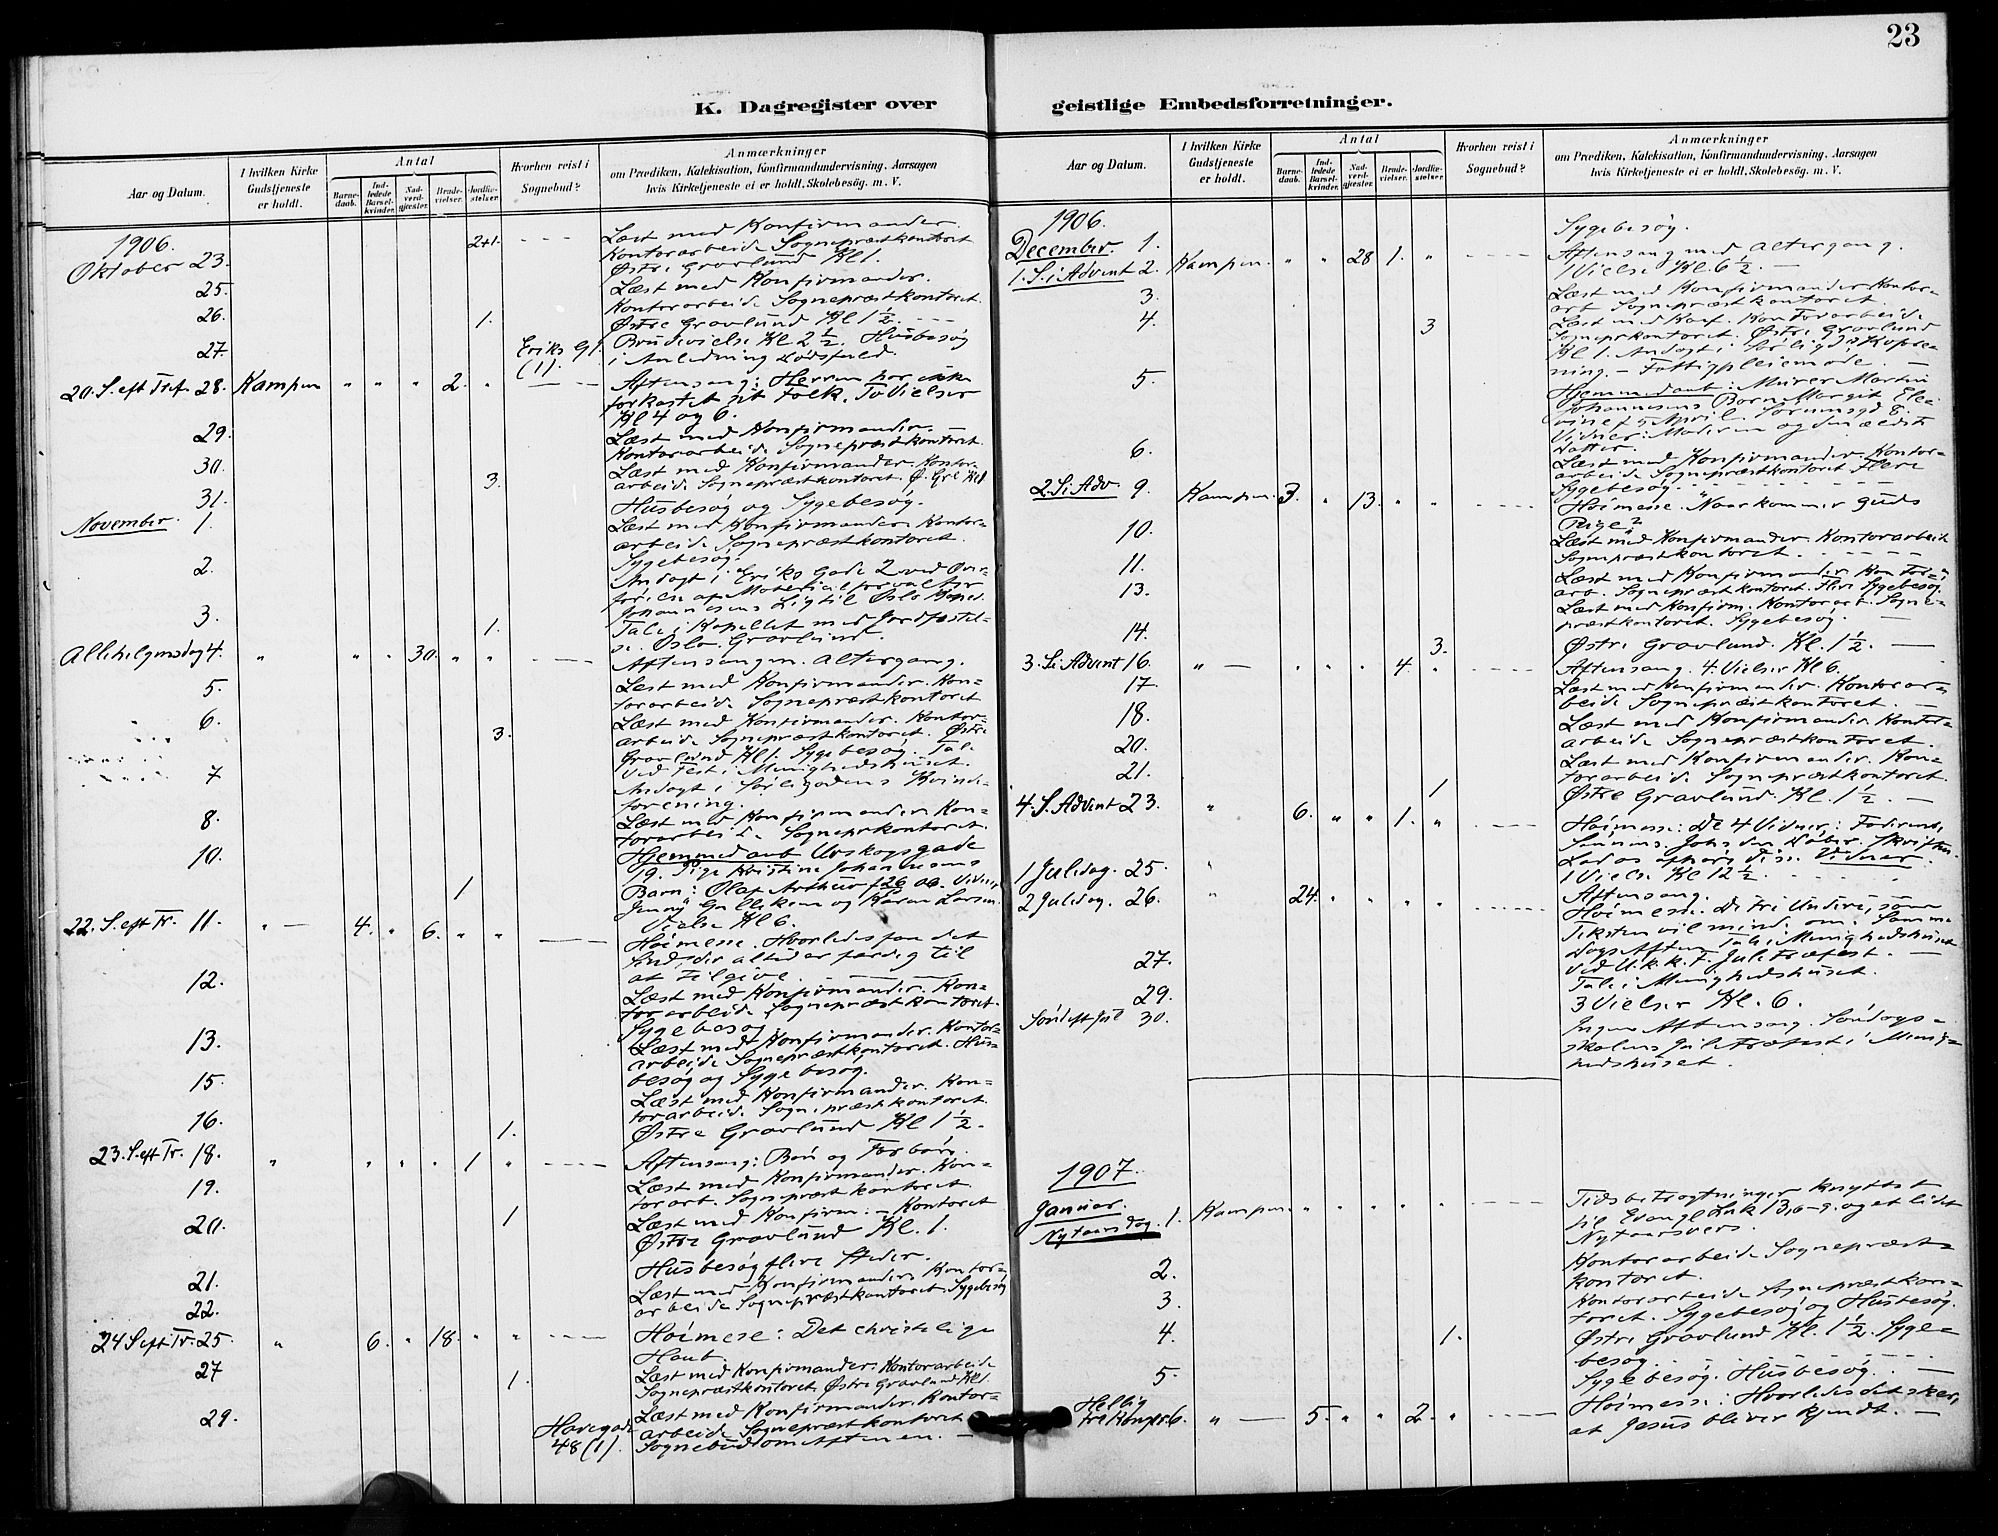 23
K. Dagregister over geistlige Embedsforretninger.
Aar og Datum.
I hvilken Kirke Gudstjeneste er holdt.
Antal
Barnedaab.
Indledede Barselkvinder.
Nadverdgjæster.
Brudevielser.
Jordfæstelser.
Hvorhen reist i Sognebud?
Anmærkninger
om Prædiken, Katekisation, Konfirmandundervisning. Aarsagen
hvis Kirketjeneste ei er holdt. Skolebesøg. m. V.
1906.
Oktober 23. 2+1. Læst med Konfirmander.
Kontorarbeide Sognepræstkontoret
Østre Gravlund Kl 1.
25. Læst med Konfirmander.
Kontorarbeide Sognepræstkontoret.
26. 1. Østre Gravlund Kl 1 1/2.
27. Eriks G 1. (1). Brudevielse Kl 2 1/2. Husbesøg
i Anledning Dødsfald.
20. S. eft Tref. 28. Kampen " " " 2. " Aftensang: Herren har ikke
forkastet sit Folk. To Vielser
Kl 4 og 6.
29. Læst med Konfirmander.
Kontorarbeide Sognepræstkontoret.
30. 3. Læst med Konfirmander. Kontor-
arbeide Sognepræstkontoret. Ø. Grl Kl 1
31. Husbesøg og Sygebesøg.
November. 1. Læst med Konfirmander. Kontor-
arbeide Sognepræstkontoret.
Sygebesøg.
2. Andagt i Eriks Gade 2 ved Ov-
førelse af Materialforvalter
Johannesens Lig til Oslo Kapel.
3. 1. Tale i Kapellet med Jordfæstel-
se. Oslo Gravlund.
Allehelgensdag 4. " " " 30. " " Aftensang m. Altergang.
5. Læst med Konfirmander. Kon-
torarbeide Sognepræstkontoret
6. 3. Læst med Konfirmander. Kontor-
arbeide Sognepræstkontoret. Østre
Gravlund Kl 1. Sygebesøg. Tale
ved Fest i Menighedshuset.
7 Andagt i Sørligadens Kvinde-
forening.
8. Læst med Konfirmander Kon-
torarbeide Sogneprkontoret.
10. 1 Hjemmedaab Urskogsgade
19. Pige Kristine Johannesens
Barn: Olaf Arthur f 26 Vidner
Jenny og Karen Larsen.
Vielse Kl 6.
22. S. eft Tr. 11. " 4. " 6. " " Høimesse. Hvorledes faa det
Sind, der altid er færdig til
at tilgive.
12. Læst med Konfirmander. Kon-
torarbeide Sognepræstkontoret.
Sygebesøg
13. Læst med Konfirmander. Kontor-
arbeide Sognepræstkontoret. Hus-
besøg og Sygebesøg.
15. Læst med Konfirmander. Kon-
torarbeide Sognepræstkontoret.
16. 1. Østre Gravlund Kl 1 1/2.
23. S. eft Tr. 18. " " " " 1 " Aftensang: Bøn og Forbøn.
19. Læst med Konfirmander. Kon-
torarb. Sognepræstkontoret.
20. 1 Læst med Konfirm. - Kontoret
Østre Gravlund Kl. 1.
21. Husbesøg flere Steder.
22. Læst med Konfirmander Kontor-
arbeide Sognepræstkontoret. Sygebesøg
24 S eft Tr. 25. " 6. " 18. " " Høimesse: Det christelige
Haab.
27 1. Læst med Konfirmander. Kontorarbeide
Sognepræstkontoret. Østre Gravlund Kl 1
29. Havegade 48 (1). Læst med Konfirmander. Kontor-
arbeide Sognepræstkontoret
Sognebud om Aftenen.
Aar og Datum.
I hvilken Kirke Gudstjeneste er holdt.
Antal
Barnedaab.
Indledede Barselkvinder.
Nadverdgjæster.
Brudevielser.
Jordfæstelser.
Hvorhen reist i Sognebud?
Anmærkninger
om Prædiken, Katekisation, Konfirmandundervisning. Aarsagen
hvis Kirketjeneste ei er holdt. Skolebesøg. m. V.
1906.
December. 1. Sygebesøg.
1. S. i Advent 2. Kampen. " " 28 1. " Aftensang med Altergang.
1 Vielse Kl. 6 1/2.
3. Læst med Konfirmander Kontor-
arb Sognepræstkontoret.
4. 3 Læst med Konf. Kontorarbeide
Sogneprkontoret. Østre Gravlund
Kl 1. Andagt i Sørligd
ning. - Fattigpleiemøde.
5. Hjemmedaab: Murer Martin
Johannesens Barn Margit Ele-
vine f 5 April. Sørumsgd 8.
Vidner: Moderen og den ældste
Datter.
6. Læst med Konfirmander. Kontor-
arbeide Sognepræstkontoret Flere
Sygebesøg.
2. S. i Adv. 9. Kampen. 3. " 13. " " Høimesse. Naar kommer Guds
Rige?
10. Læst med Konfirmander Kontorarbeit
Sognepræstkontoret.
11. Læst med Konfirmander. Kontor-
arb. Sognepræstkontoret. Flere Sygebesøg.
13. Læst med Konfirm. Kontorarb. Sogne-
præstkontoret. Sygebesøg.
14. 3. Østre Gravlund. Kl. 1 1/2.
3. S. i Advent 16. " " " " 4. " Aftensang. 4. Vielser Kl 6.
17. Læst med Konfirmander. Kontorar-
beide Sognepræstkontoret.
18. Læst med Konfirmander Kontor-
arbeide Sognepræstkontoret.
20. Læst med Konfirmander. Kon-
torarbeide Sognepræstkontoret.
21. 1 Østre Gravlund. Kl. 1 1/2.
4. S. Advent 23. " 6. " " 1. " Høimesse: De 4 Vidner: Faderens,
Sønnens, Johs den Døber, Skriften.
Lad os afhøre disse Vidner.
1 Vielse Kl 12 1/2.
1 Juledag. 25. " Aftensang.
2 Juledag. 26. " 24. " " " " Høimesse. De tre Undere, som
Teksten vil minde om. Samme
Dags Aften Tale i Menighedshuset
ved U.k.k.F. Juletræfest.
27. Tale i Menighedshuset.
29. 3 Vielser Kl. 6.
Sønd eft Jul 30. Ingen Aftensang. Søndags-
skolens Juletræfest i Menig-
hedshuset.
1907.
Januar.
Nytaarsdag. 1. Kampen. " " " " " Tidsbetragtninger knyttet
til Evangl Luk 13,6-9. og et lidet
Nytaarsvers.
2. Kontorarbeide Sognepræst-
kontoret.
3. Kontorarbeide Sognepræstkon-
toret. Sygebesøg og Husbesøg.
4. 1. Østre Gravlund Kl. 1 1/2. Syge-
besøg.
5. Sygebesøg. Husbesøg.
Hellig
tre Konger 6. " 5. " " 2. " Høimesse: Hvorledes det sker,
at Jesus bliver kjendt.